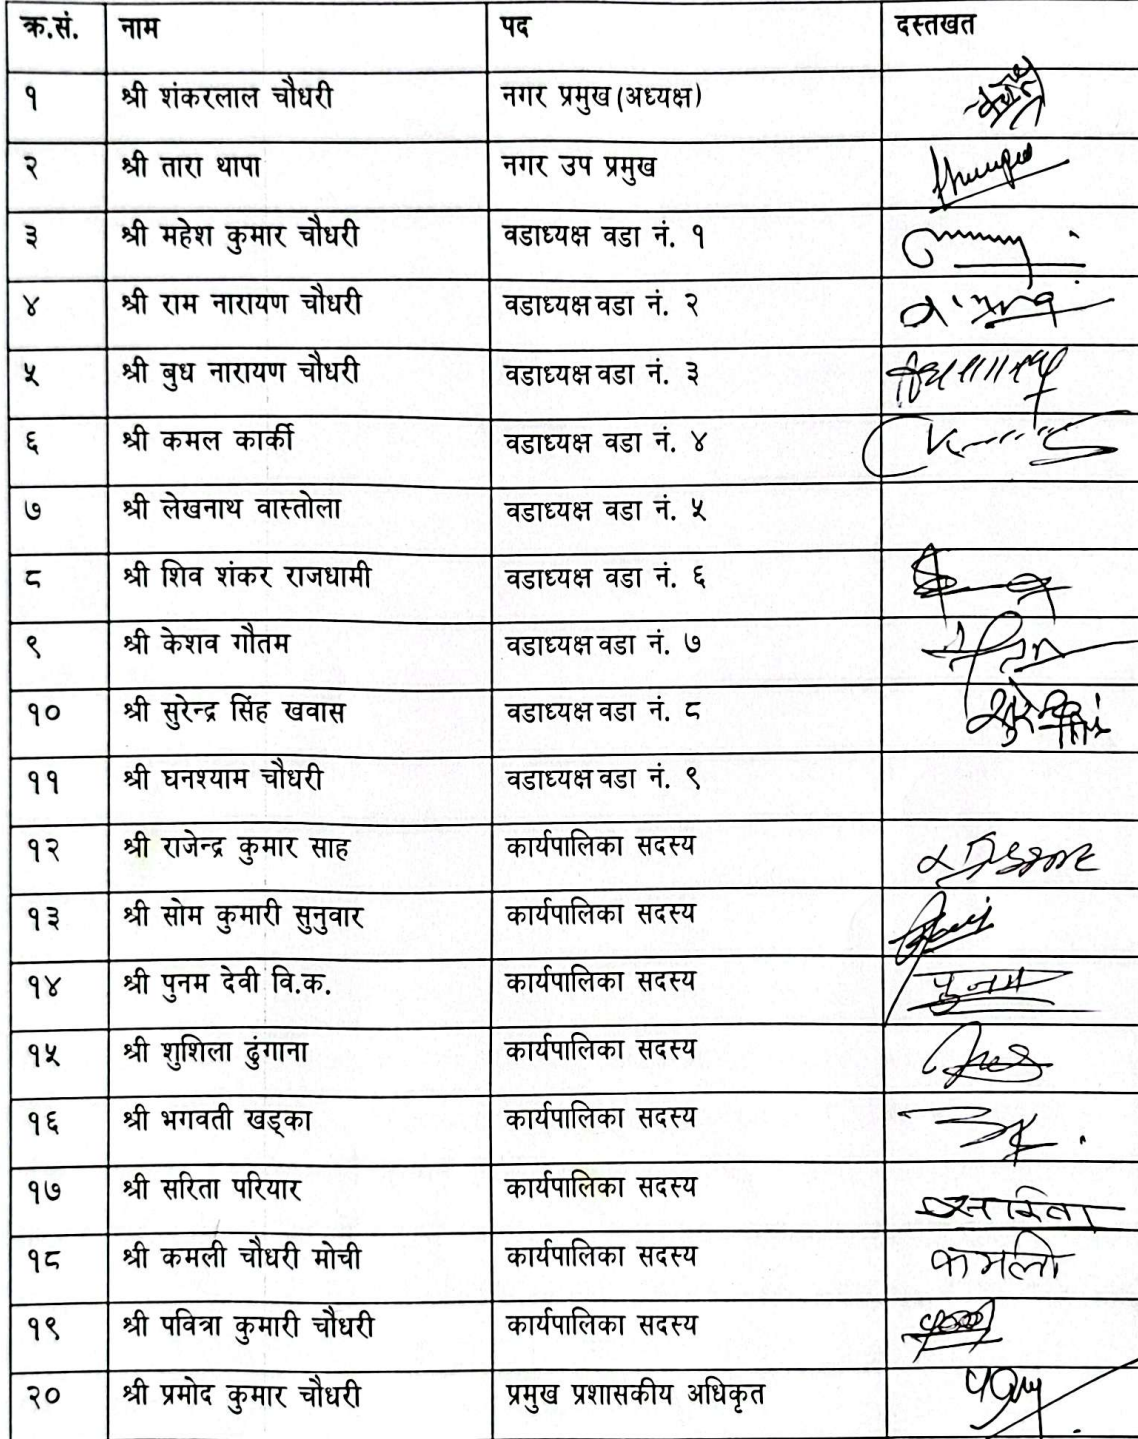 क्र.सं. नाम पद दस्तखत
१ श्री शंकरलाल चौधरी नगर प्रमुख(अध्यक्ष)
२ श्री तारा थापा नगर उप प्रमुख
३ श्री महेश कुमार चौधरी वडाध्यक्ष वडा नं. १
४ श्री राम नारायण चौधरी वडाध्यक्ष वडा नं. २
५ श्री बुध नारायण चौधरी वडाध्यक्ष वडा नं. ३
६ श्री कमल कार्की वडाध्यक्ष वडा नं. ४
७ श्री लेखनाथ वास्तोला वडाध्यक्ष वडा नं. ५
८ श्री शिव शंकर राजधामी वडाध्यक्ष वडा नं. ६
९ श्री केशव गौतम वडाध्यक्ष वडा नं. ७
१० श्री सुरेन्द्र सिंह खवास वडाध्यक्ष वडा नं. ८
११ श्री घनश्याम चौधरी वडाध्यक्ष वडा नं. ९
१२ श्री राजेन्द्र कुमार साह कार्यपालिका सदस्य
१३ श्री सोम कुमारी सुनुवार कार्यपालिका सदस्य
१४ श्री पुनम देवी वि.क. कार्यपालिका सदस्य पुनम
१५ श्री शुशिला ढुंगाना कार्यपालिका सदस्य
१६ श्री भगवती खड्का कार्यपालिका सदस्य
१७ श्री सरिता परियार कार्यपालिका सदस्य सरिता
१८ श्री कमली चौधरी मोची कार्यपालिका सदस्य कमली
१९ श्री पवित्रा कुमारी चौधरी कार्यपालिका सदस्य
२० श्री प्रमोद कुमार चौधरी प्रमुख प्रशासकीय अधिकृत